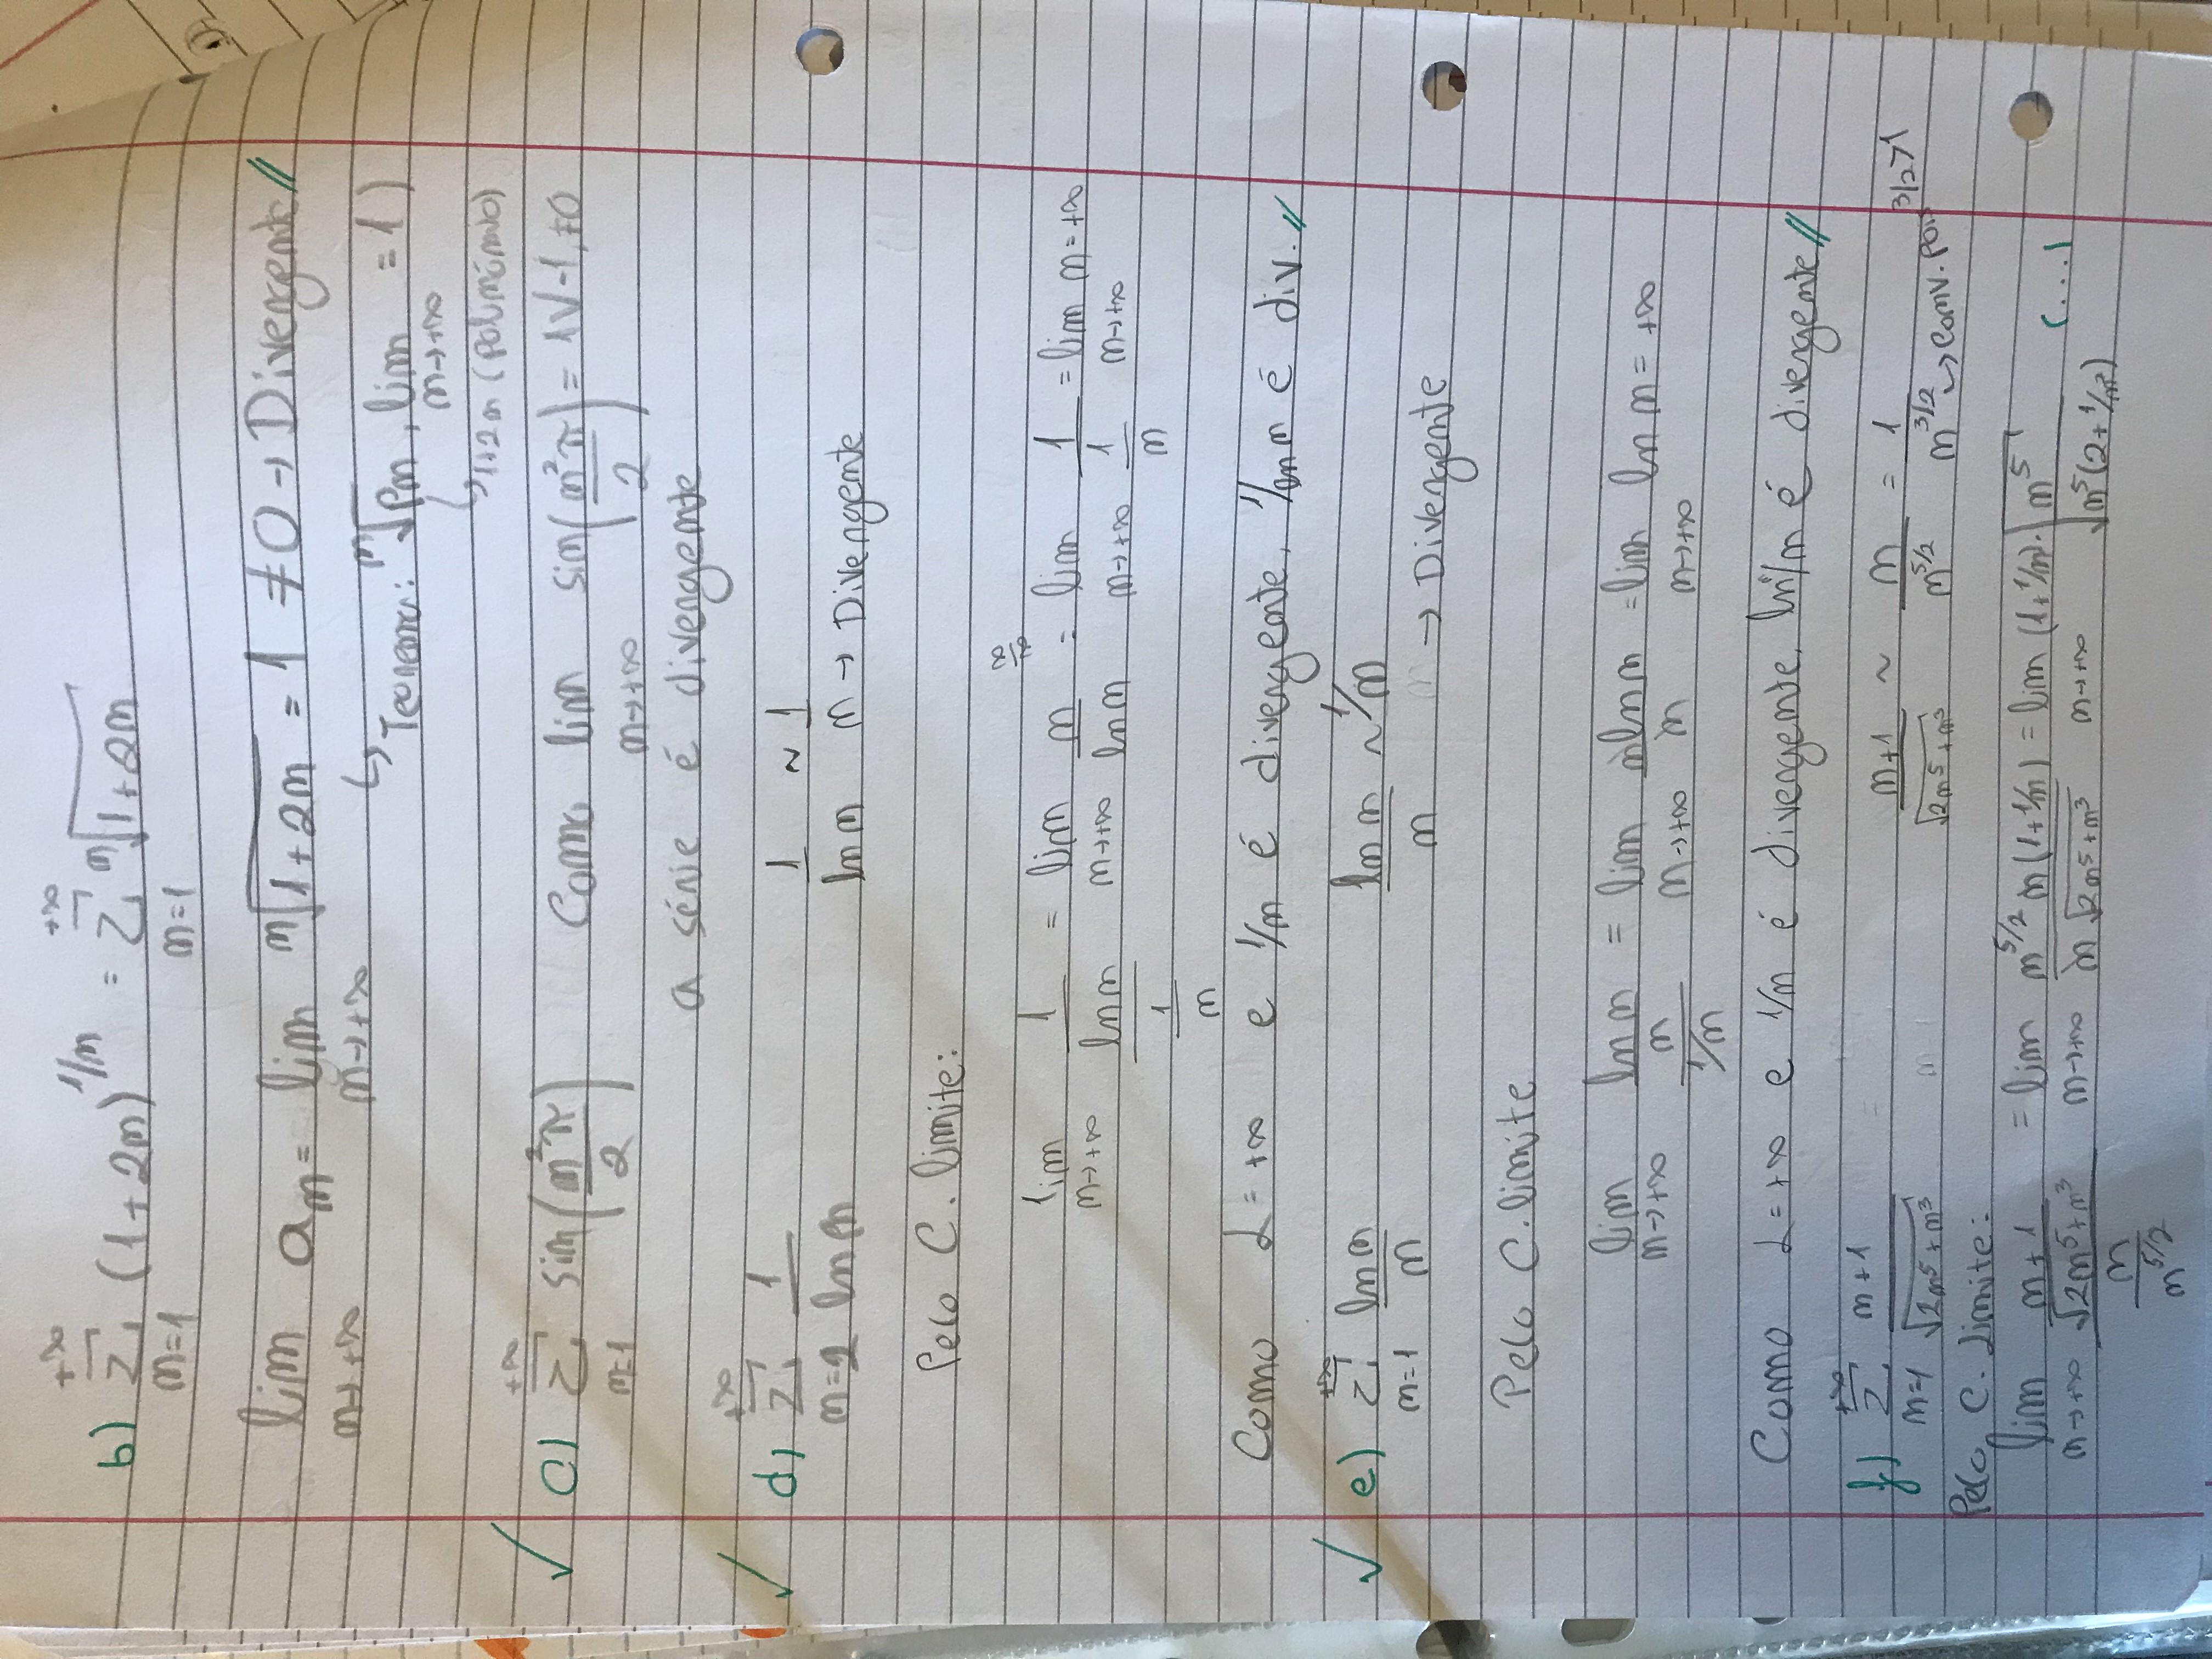 b) $\sum_{n=1}^{+\infty} (1+2n)^{1/n} = \sum_{n=1}^{+\infty} \sqrt[n]{1+2n}$
$\lim_{n\to+\infty} a_n = \lim_{n\to+\infty} \sqrt[n]{1+2n} = 1 \neq 0$ → Divergente //
↳ Teorema: $\sqrt[n]{P_n}$, $\lim_{n\to+\infty} = 1$)
↳ 1+2n (polinómio)
✓ c) $\sum_{n=1}^{+\infty} \sin\left(\frac{n^2\pi}{2}\right)$ Como $\lim_{n\to+\infty} \sin\left(\frac{n^2\pi}{2}\right) = 1 \vee -1, \neq 0$
a série é divergente
✓ d) $\sum_{n=2}^{+\infty} \frac{1}{\ln n}$ $\frac{1}{\ln n} \sim \frac{1}{n}$ → Divergente
Pelo C. limite:
$\lim_{n\to+\infty} \frac{\frac{1}{\ln n}}{\frac{1}{n}} = \lim_{n\to+\infty} \frac{n}{\ln n} \overset{\frac{\infty}{\infty}}{=} \lim_{n\to+\infty} \frac{1}{\frac{1}{n}} = \lim_{n\to+\infty} n = +\infty$
Como L = +∞ e 1/n é divergente, 1/ln n é div. //
✓ e) $\sum_{n=1}^{+\infty} \frac{\ln n}{n}$ $\frac{\ln n}{n} \sim 1/n$
→ Divergente
Pelo C. limite
$\lim_{n\to+\infty} \frac{\frac{\ln n}{n}}{1/n} = \lim_{n\to+\infty} \frac{n \ln n}{n} = \lim_{n\to+\infty} \ln n = +\infty$
Como L = +∞ e 1/n é divergente, ln n/n é divergente //
f) $\sum_{n=1}^{+\infty} \frac{n+1}{\sqrt{2n^5+n^3}}$ $\frac{n+1}{\sqrt{2n^5+n^3}} \sim \frac{n}{n^{5/2}} = \frac{1}{n^{3/2}}$ ↳ conv. pois 3/2>1
Pelo C. Limite:
$\lim_{n\to+\infty} \frac{\frac{n+1}{\sqrt{2n^5+n^3}}}{\frac{n}{n^{5/2}}} = \lim_{n\to+\infty} \frac{n^{5/2} n(1+1/n)}{n\sqrt{2n^5+n^3}} = \lim_{n\to+\infty} (1+1/n) \cdot \sqrt{\frac{n^5}{n^5(2+1/n^2)}}$ (....)